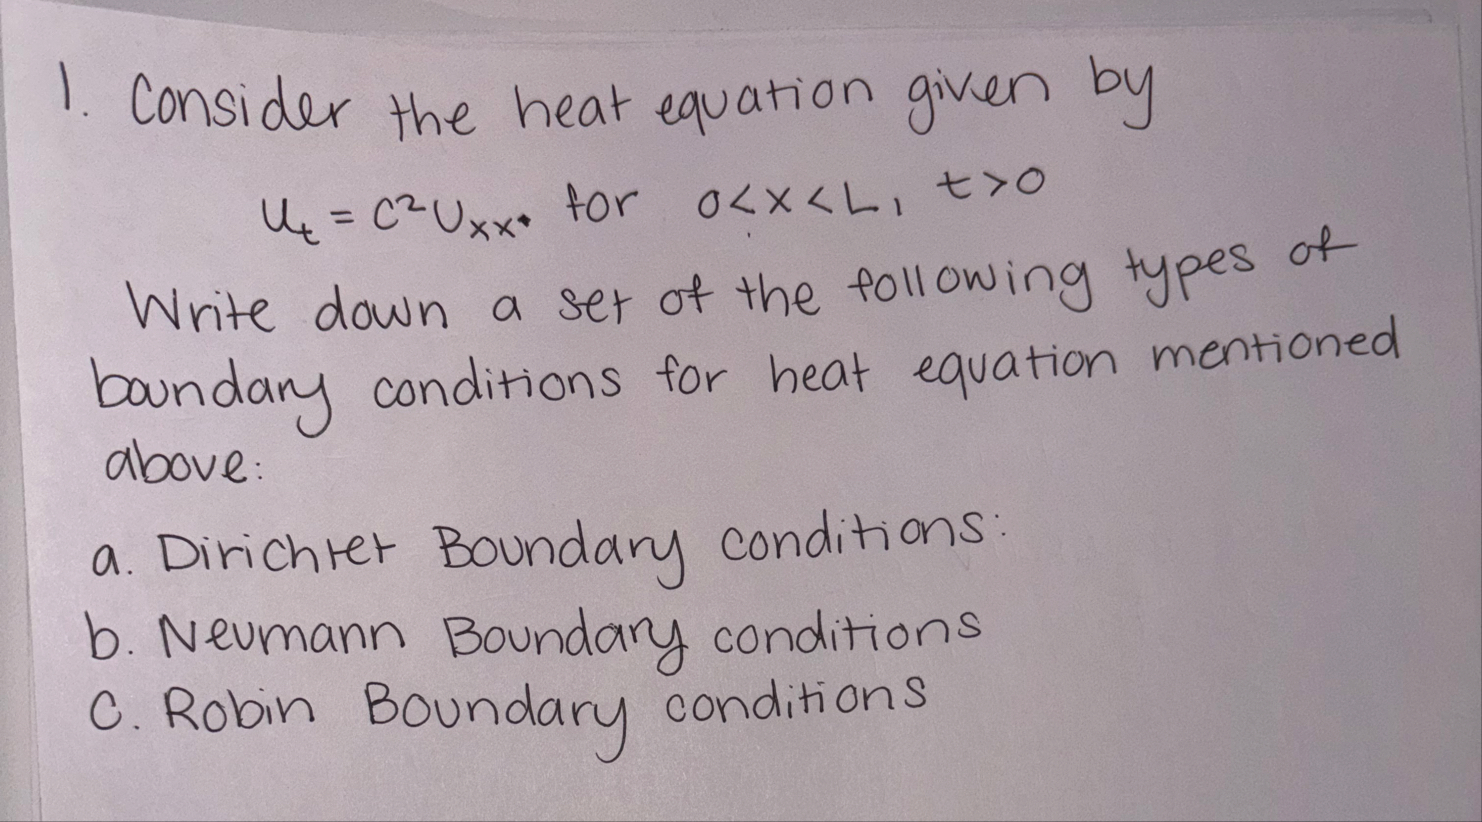 1. Consider the heat equation given by
u_t = c²u_xx. for 0<x<L, t>0
Write down a set of the following types of
boundary conditions for heat equation mentioned
above:
a. Dirichlet Boundary conditions:
b. Neumann Boundary conditions
C. Robin Boundary conditions